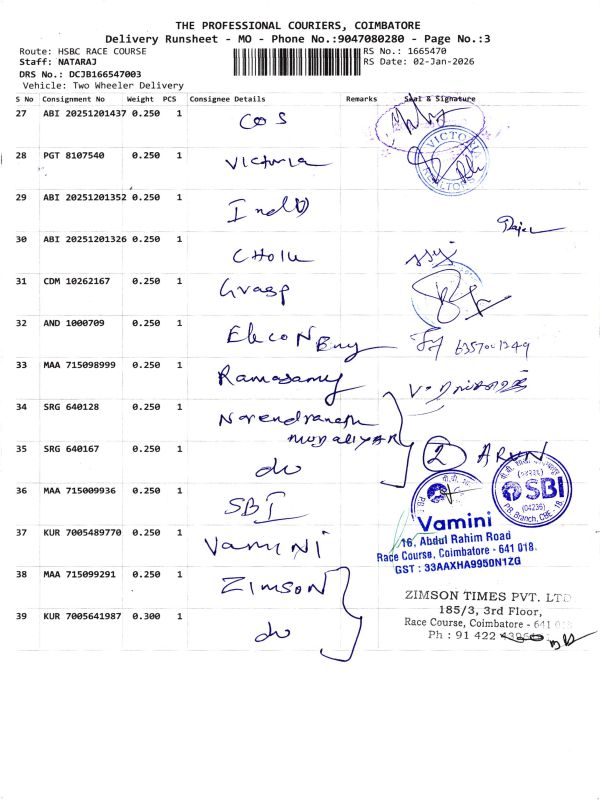 THE PROFESSIONAL COURIERS, COIMBATORE
Delivery Runsheet - MO - Phone No.:9047080280 - Page No.:3
Route: HSBC RACE COURSE
RS No.: 1665470
Staff: NATARAJ
RS Date: 02-Jan-2026
DRS No.: DCJB166547003
Vehicle: Two Wheeler Delivery
S No Consignment No Weight PCS Consignee Details Remarks Seal & Signature
27 ABI 20251201437 0.250 1 COS
28 PGT 8107540 0.250 1 Victoria
VICTORIA REALTORS
29 ABI 20251201352 0.250 1
30 ABI 20251201326 0.250 1
31 CDM 10262167 0.250 1 Grasp
32 AND 1000709 0.250 1
33 MAA 715098999 0.250 1 Ramasamy
34 SRG 640128 0.250 1 Narendranath
MUDALIYAR
35 SRG 640167 0.250 1 do
2 ARUN
36 MAA 715009936 0.250 1 SBI
SBI
(04236)
37 KUR 7005489770 0.250 1 VAMINI
Vamini
16, Abdul Rahim Road
Race Course, Coimbatore - 641 018.
GST : 33AAXHA9950N1ZG
38 MAA 715099291 0.250 1 ZIMSON
39 KUR 7005641987 0.300 1 do
ZIMSON TIMES PVT. LTD
185/3, 3rd Floor,
Race Course, Coimbatore - 641
Ph : 91 422